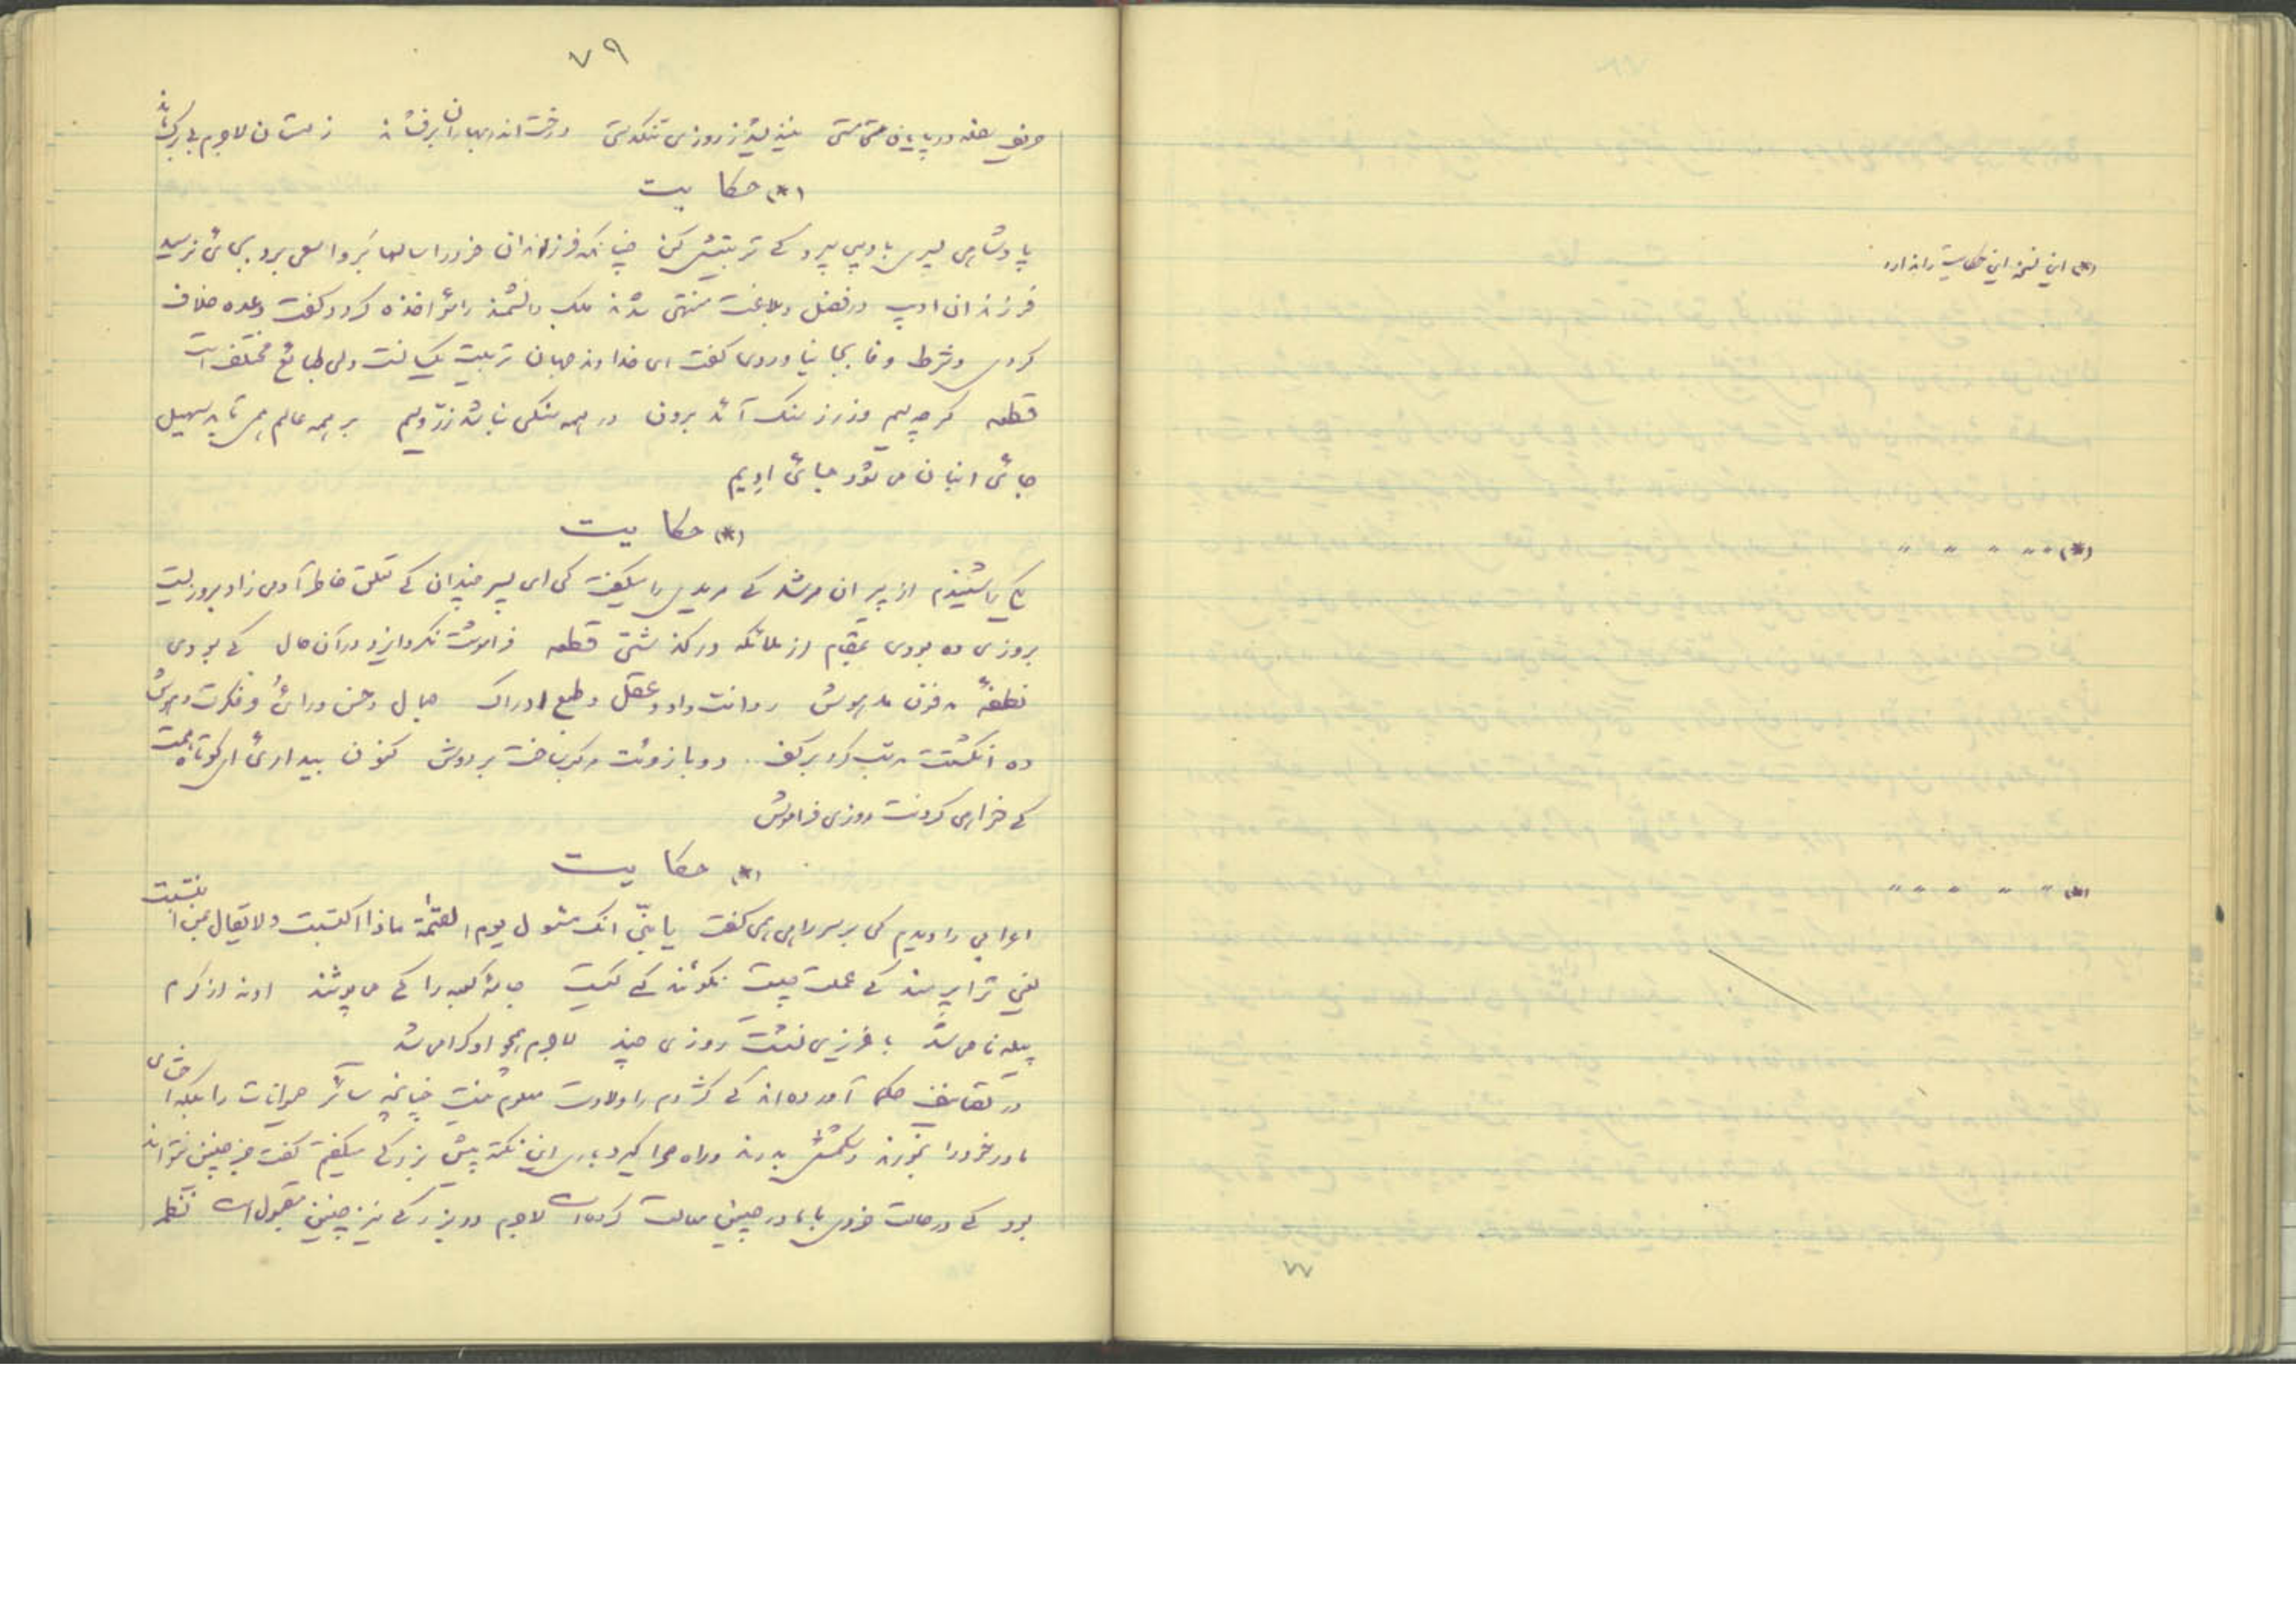 ۷۹
حریف سفله در پایان مستی نیندیشد ز روز تنگدستی درخت اندر بهاران برفشاند زمستان لاجرم بی برگ ماند
(*) حکایت
پادشاهی پسری بادیبی سپرد کے تربیتش کن چنانکه فرزندان خود را سالها برو سعی برد بجائی نرسید
فرزندان ادیب در فضل و بلاغت منتهی شدند ملک دانشمند را مؤاخذه کرد و گفت وعده خلاف
کردی و شرط وفا بجا نیاوردی گفت ای خداوند جهان تربیت یکسانست ولی طبائع مختلف است
قطعه گرچه سیم و زر ز سنگ آئد برون در همه سنگی نباشد زرّ و سیم بر همه عالم همی تابد سهیل
جائی انبان می شود جائی ادیم
(*) حکایت
یکی را شنیدم از پیران مرشد کے مریدی را میگفت کی ای پسر چندان کے تعلق خاطر آدمی زاد بروزیست
بروزی ده بودی بمقام از ملائکه در گذشتی قطعه فراموشت نکرد ایزد در آن حال کے بودی
نطفهٔ مدفون مدهوش روانت داد و عقل و طبع ادراک جمال و حسن و رائ و فکرت و هوش
ده انگشتت مرتب کرد بر کف دو بازوئت مرکب ساخت بر دوش کنون پنداری ای کوتاه همت
کے خواهی کردنت روزی فراموش
(*) حکایت
اعرابی را دیدم کی بر سر راهی همی گفت یا بنیّ انک مسئول یوم القیمة ماذا اکتسبت ولا یقال بمن انتسبت
یعنی ترا پرسند کے عملت چیست نگوئند کے پدرت کیست جامهٔ کعبه را کے می پوشند او نه از کرم
پیله نامی شد با عزیزی نشست روزی چند لاجرم همچو او گرامی شد
در تصانیف حکما آورده اند کے کژدم را ولادت معلوم نیست چنانچه سائر حیوانات را بلکه احشای
مادر خود را بخورند و شکمش بدرند و راه صحرا گیرند باری این نکته پیش بزرگی میگفتم گفت جز چنین نتواند
بود کے در حالت خردی با مادر چنین معاملت کرده است لاجرم در بزرگی نیز چنین مقبول است قطعه
(*) این نسخه این حکایت را ندارد
(*) " " " " "
(*) " " " " "
۷۷